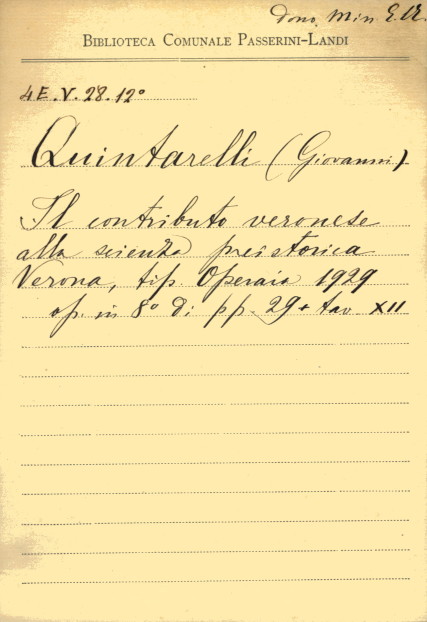 dono Min. E.N.
BIBLIOTECA COMUNALE PASSERINI-LANDI
4E.V.28.12°
Quintarelli (Giovanni)
Il contributo veronese
alla scienza preistorica
Verona, tip. Operaia 1929
op. in 8° di pp. 29 + tav. XII